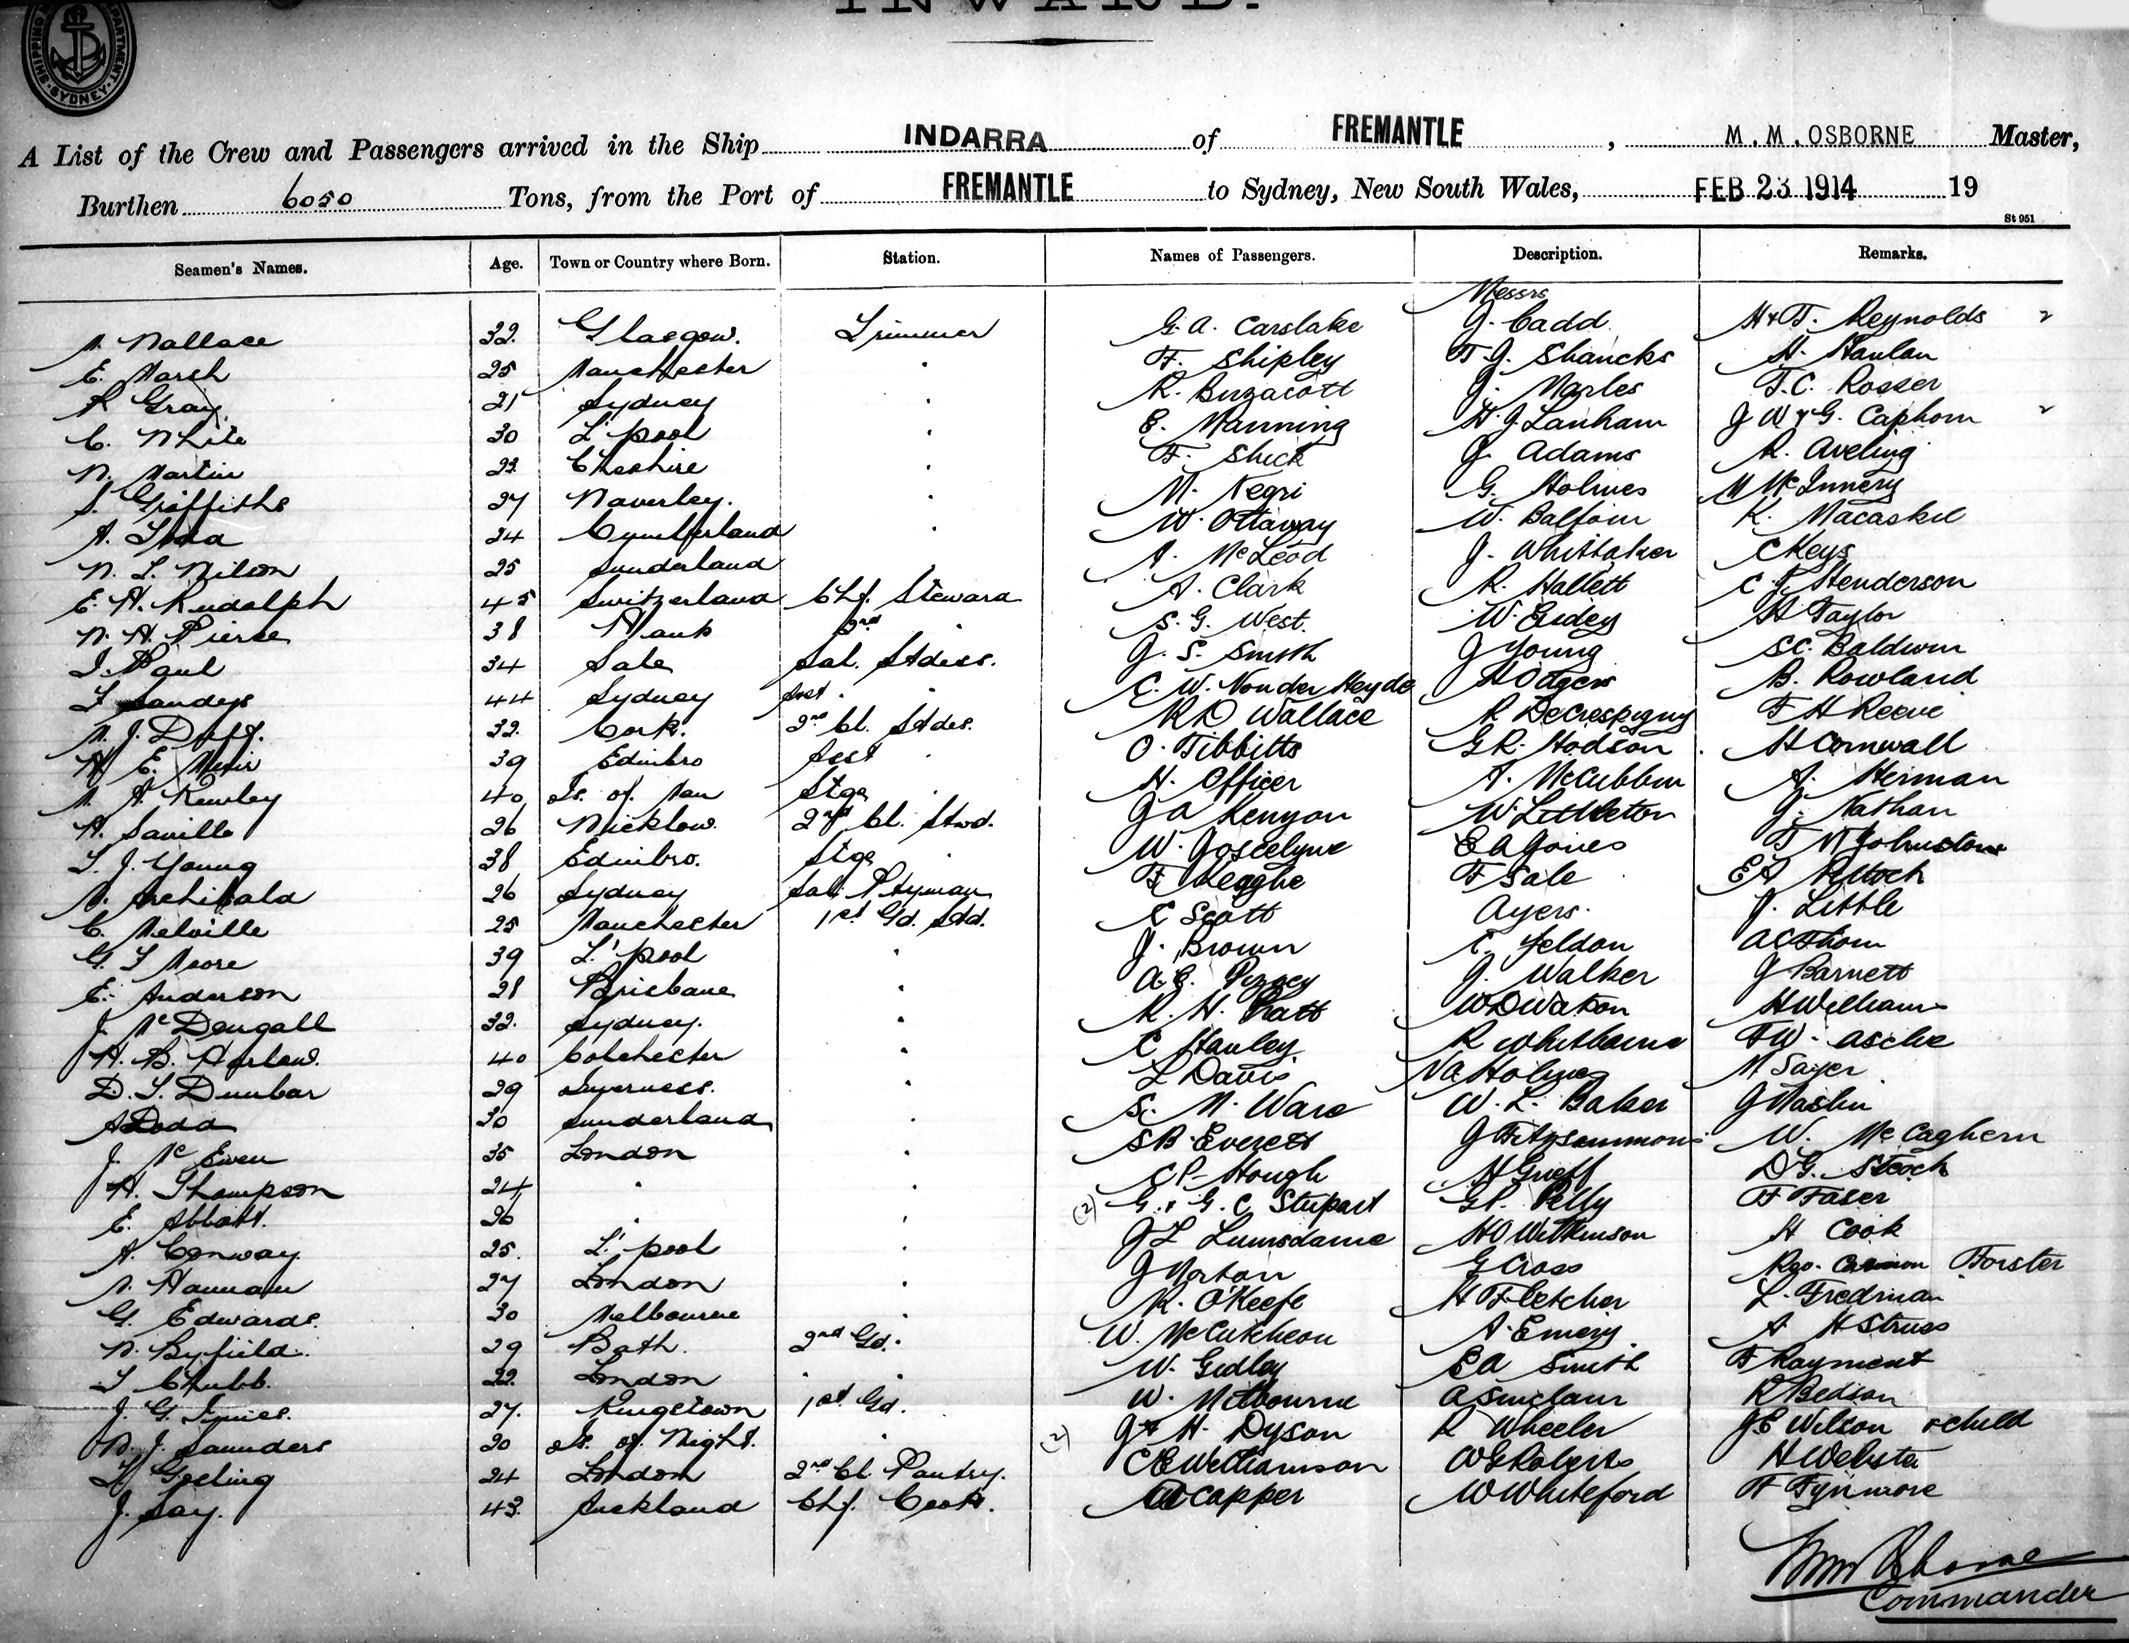 INWARD.
SHIPPING DEPARTMENT SYDNEY
A List of the Crew and Passengers arrived in the Ship INDARRA of FREMANTLE, M. M. OSBORNE Master,
Burthen 6050 Tons, from the Port of FREMANTLE to Sydney, New South Wales, FEB 23 1914 19
St 951
Seamen's Names. Age. Town or Country where Born. Station. Names of Passengers. Description. Remarks.
Messrs
W. Wallace 32. Glasgow. Trimmer G. A. Carslake J. Cadd H & F. Reynolds 2
E. Marsh 25 Manchester " F. Shipley F. J. Shancks H. Hanlan
R Gray 21 Sydney " R. Buzacott J. Marles F. C. Rosser
C. White 30 L'pool " E. Manning H. J Lanham J W & G. Caphorn 2
W. Martin 22 Cheshire " F. Shick J. Adams R. Aveling
S. Griffiths 27 Waverley. " M. Negri G. Holmes M McInnery
A. 24 Cumberland " W. Ottaway W. Balfour K. Macaskil
W. L. Wilson 25 Sunderland A. McLeod J. Whittaker C Keys
E. A. Rudolph 45 Switzerland Chf. Steward A. Clark R. Hallett C. J. Henderson
W. H. Pierse 38 2nd S. G. West. W. H Taylor
J. Paul 34 Sale Sal. Stdess. J. S. Smith J Young S C. Baldwin
Sandys 44 Sydney Asst. " C. W. Von der Heyde H Odgers B. Rowland
W. J. Duff. 32. Cork. 2nd Cl. Stdes. R D Wallace R DeCrespigny F H Reeve
H E. Muir 39 Edinbro Asst " O. Tibbitts G R. Hodson H Cornwall
W. H. Kewley 40 Is. of Man Stge " H. Officer A. McCubbin A. Herman
H. Saville 26 Wicklow. 2nd Cl. Stwd. J A Kenyon W Littleton J. Nathan
T. J. Young 38 Edinbro. Stge " W. Joscelyne E A Jones F W Johnstone
W. Archibald 26 Sydney Sal. Ptyman F. Keoghe F Sale E A Pollock
C. Melville 25 Manchester 1st Gd. Std. C Scott Ayers. J. Little
G. T Moore 39 L'pool " J. Brown C. Yeldon A C Thom
E. Anderson 28 Brisbane " A. E. J. Walker J Barnett
J. McDougall 32. Sydney. " R. H. Pratt W D Watson H Williams
H. B. Harlow. 40 Colchester " C Hanley R Whitbourne F W. Asche
D. T. Dunbar 29 Inverness. " L Davis Holmes M Sayer
A Dodd 30 Sunderland " S. M. Ware W. L. Baker J Maslin
J. McEwen 35 London " S B. Everett J Fitzsimmons W. McCaghern
H. Thompson 24 " " C P. Hough H Greff D G. Stock
E. Abbott. 26 " " (2) G. & G. C. Stupart G P. Pelly F Faser
A. Conway 25. L'pool " J L Lumsdaine H O Wilkinson H Cook
W. Hannam 27 London " J Norton G Cross Rev. Canon Forster
G. Edwards. 30 Melbourne " R. O'Keefe H Fletcher L. Fredman
W. Byfield. 29 Bath. 2nd Gd. W. McCutcheon A. Emery A H Struss
T Chubb. 22. London " " W. Gidley E A Smith F Rayment
J. G. Innies. 27. Kingstown 1st Gd. W. Melbourne A Sinclair R Bedson
W. J. Saunders 20 Is. of Wight. " (2) J & H. Dyson R Wheeler J E Wilson & child
Gosling 24 London 2nd Cl Pantry. C E Williamson W G Roberts H Webster
J. Say. 43. Auckland Chf. Cook. Capper W Whiteford F Fynmore
M M Osborne
Commander